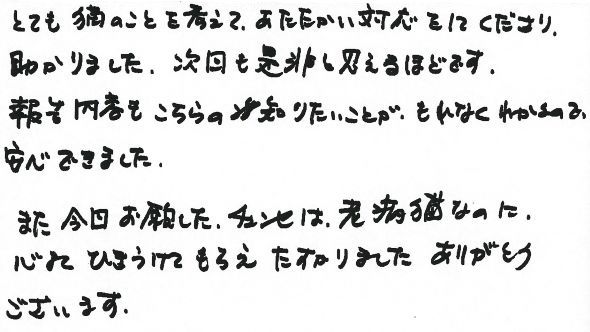 とても猫のことを考えて、あたたかい対応をしてくださり、
助かりました。次回も是非と思えるほどです。
報告内容もこちらの知りたいことが、もれなくわかるので、
安心できました。
また今回お願した、チュンセは、老病猫なのに、
心よくひきうけてもらえたすかりましたありがとう
ございます。